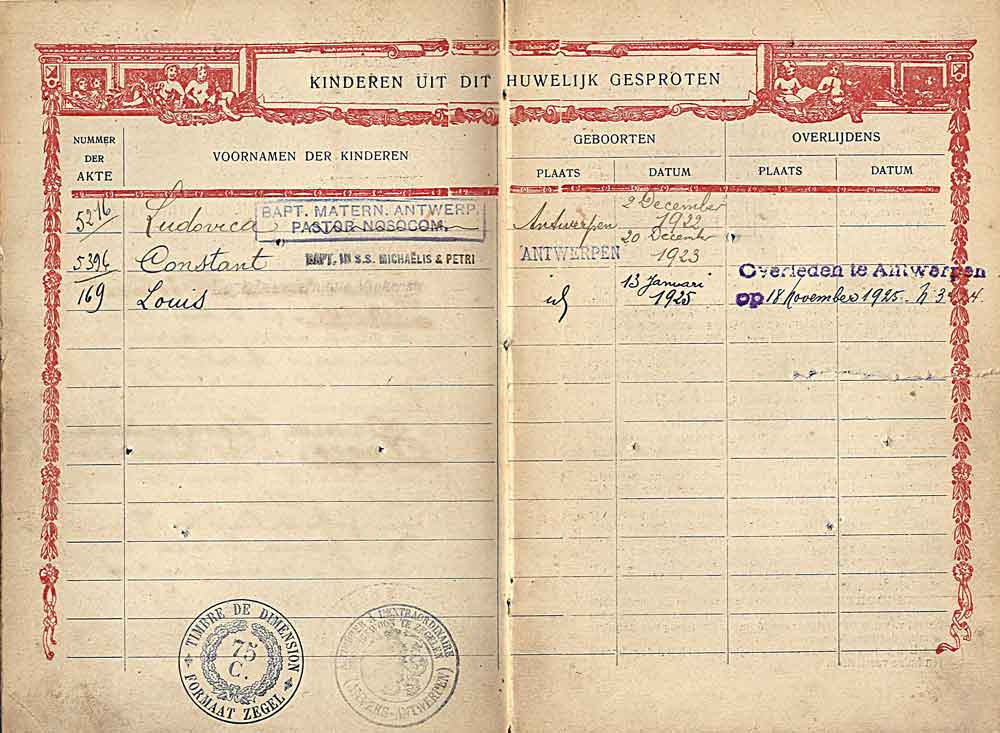 KINDEREN UIT DIT HUWELIJK GESPROTEN
NUMMER DER AKTE
VOORNAMEN DER KINDEREN
GEBOORTEN
OVERLIJDENS
PLAATS
DATUM
PLAATS
DATUM
5216 Ludovica
BAPT. MATERN. ANTWERP.
PASTOR NOSOCOM.
Antwerpen
2 December
1922
5396 Constant
BAPT. IN S.S. MICHAËLIS & PETRI
ANTWERPEN
20 Decemb
1923
169 Louis
id
13 Januari
1925
Overleden te Antwerpen
op 18 November 1925.
TIMBRE DE DIMENSION
75 C.
FORMAAT ZEGEL
TIMBRER A L'EXTRAORDINAIRE
(ANVERS-ANTWERPEN)